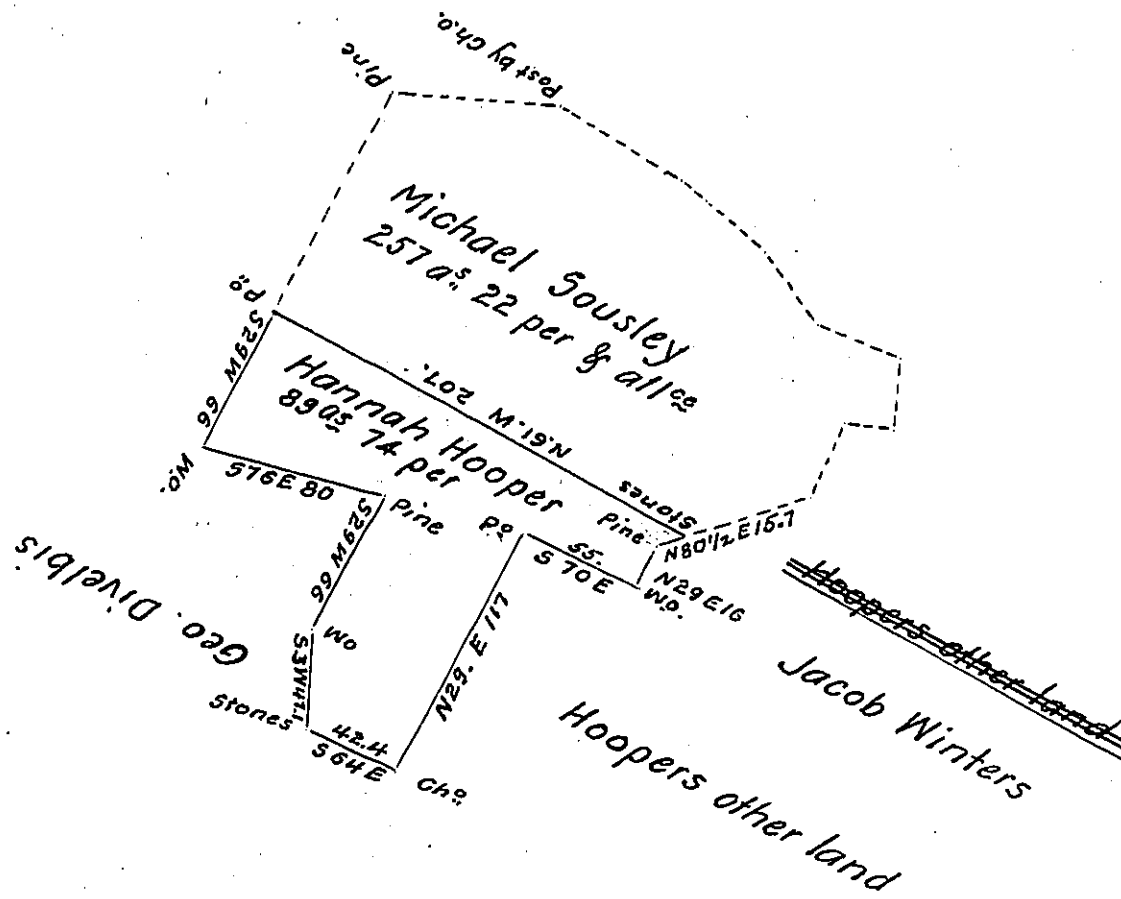 Post by Ch.o.
Pine
Michael Sousley
257 a.s 22 per & all.ce
Po
S29W 66
N.61.W 207.
Hannah Hooper
89 as 74 per
Stones
Wo.
S76E 80
Pine
Po
55.
S 70 E
Pine
N80 1/2 E 15.7
N29E16
Wo.
S29W 66
Wo
S3W42.1
Stones
42.4
S 64 E
Cho
N29. E 117
Geo. Divelbis
Hoopers other land
Jacob Winters
Hoopers other land